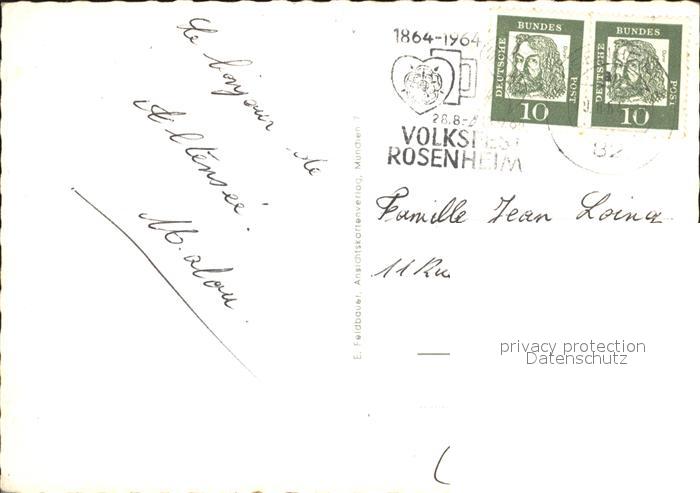 Le bonjour de
Altensee.
Malou.
E. Feldbauer, Ansichtskartenverlag, München 7
1864-1964
28.8-
VOLKSFEST
ROSENHEIM
DEUTSCHE
BUNDES
POST
10
DEUTSCHE
BUNDES
POST
10
82
Famille Jean
11 Ru
privacy protection
Datenschutz